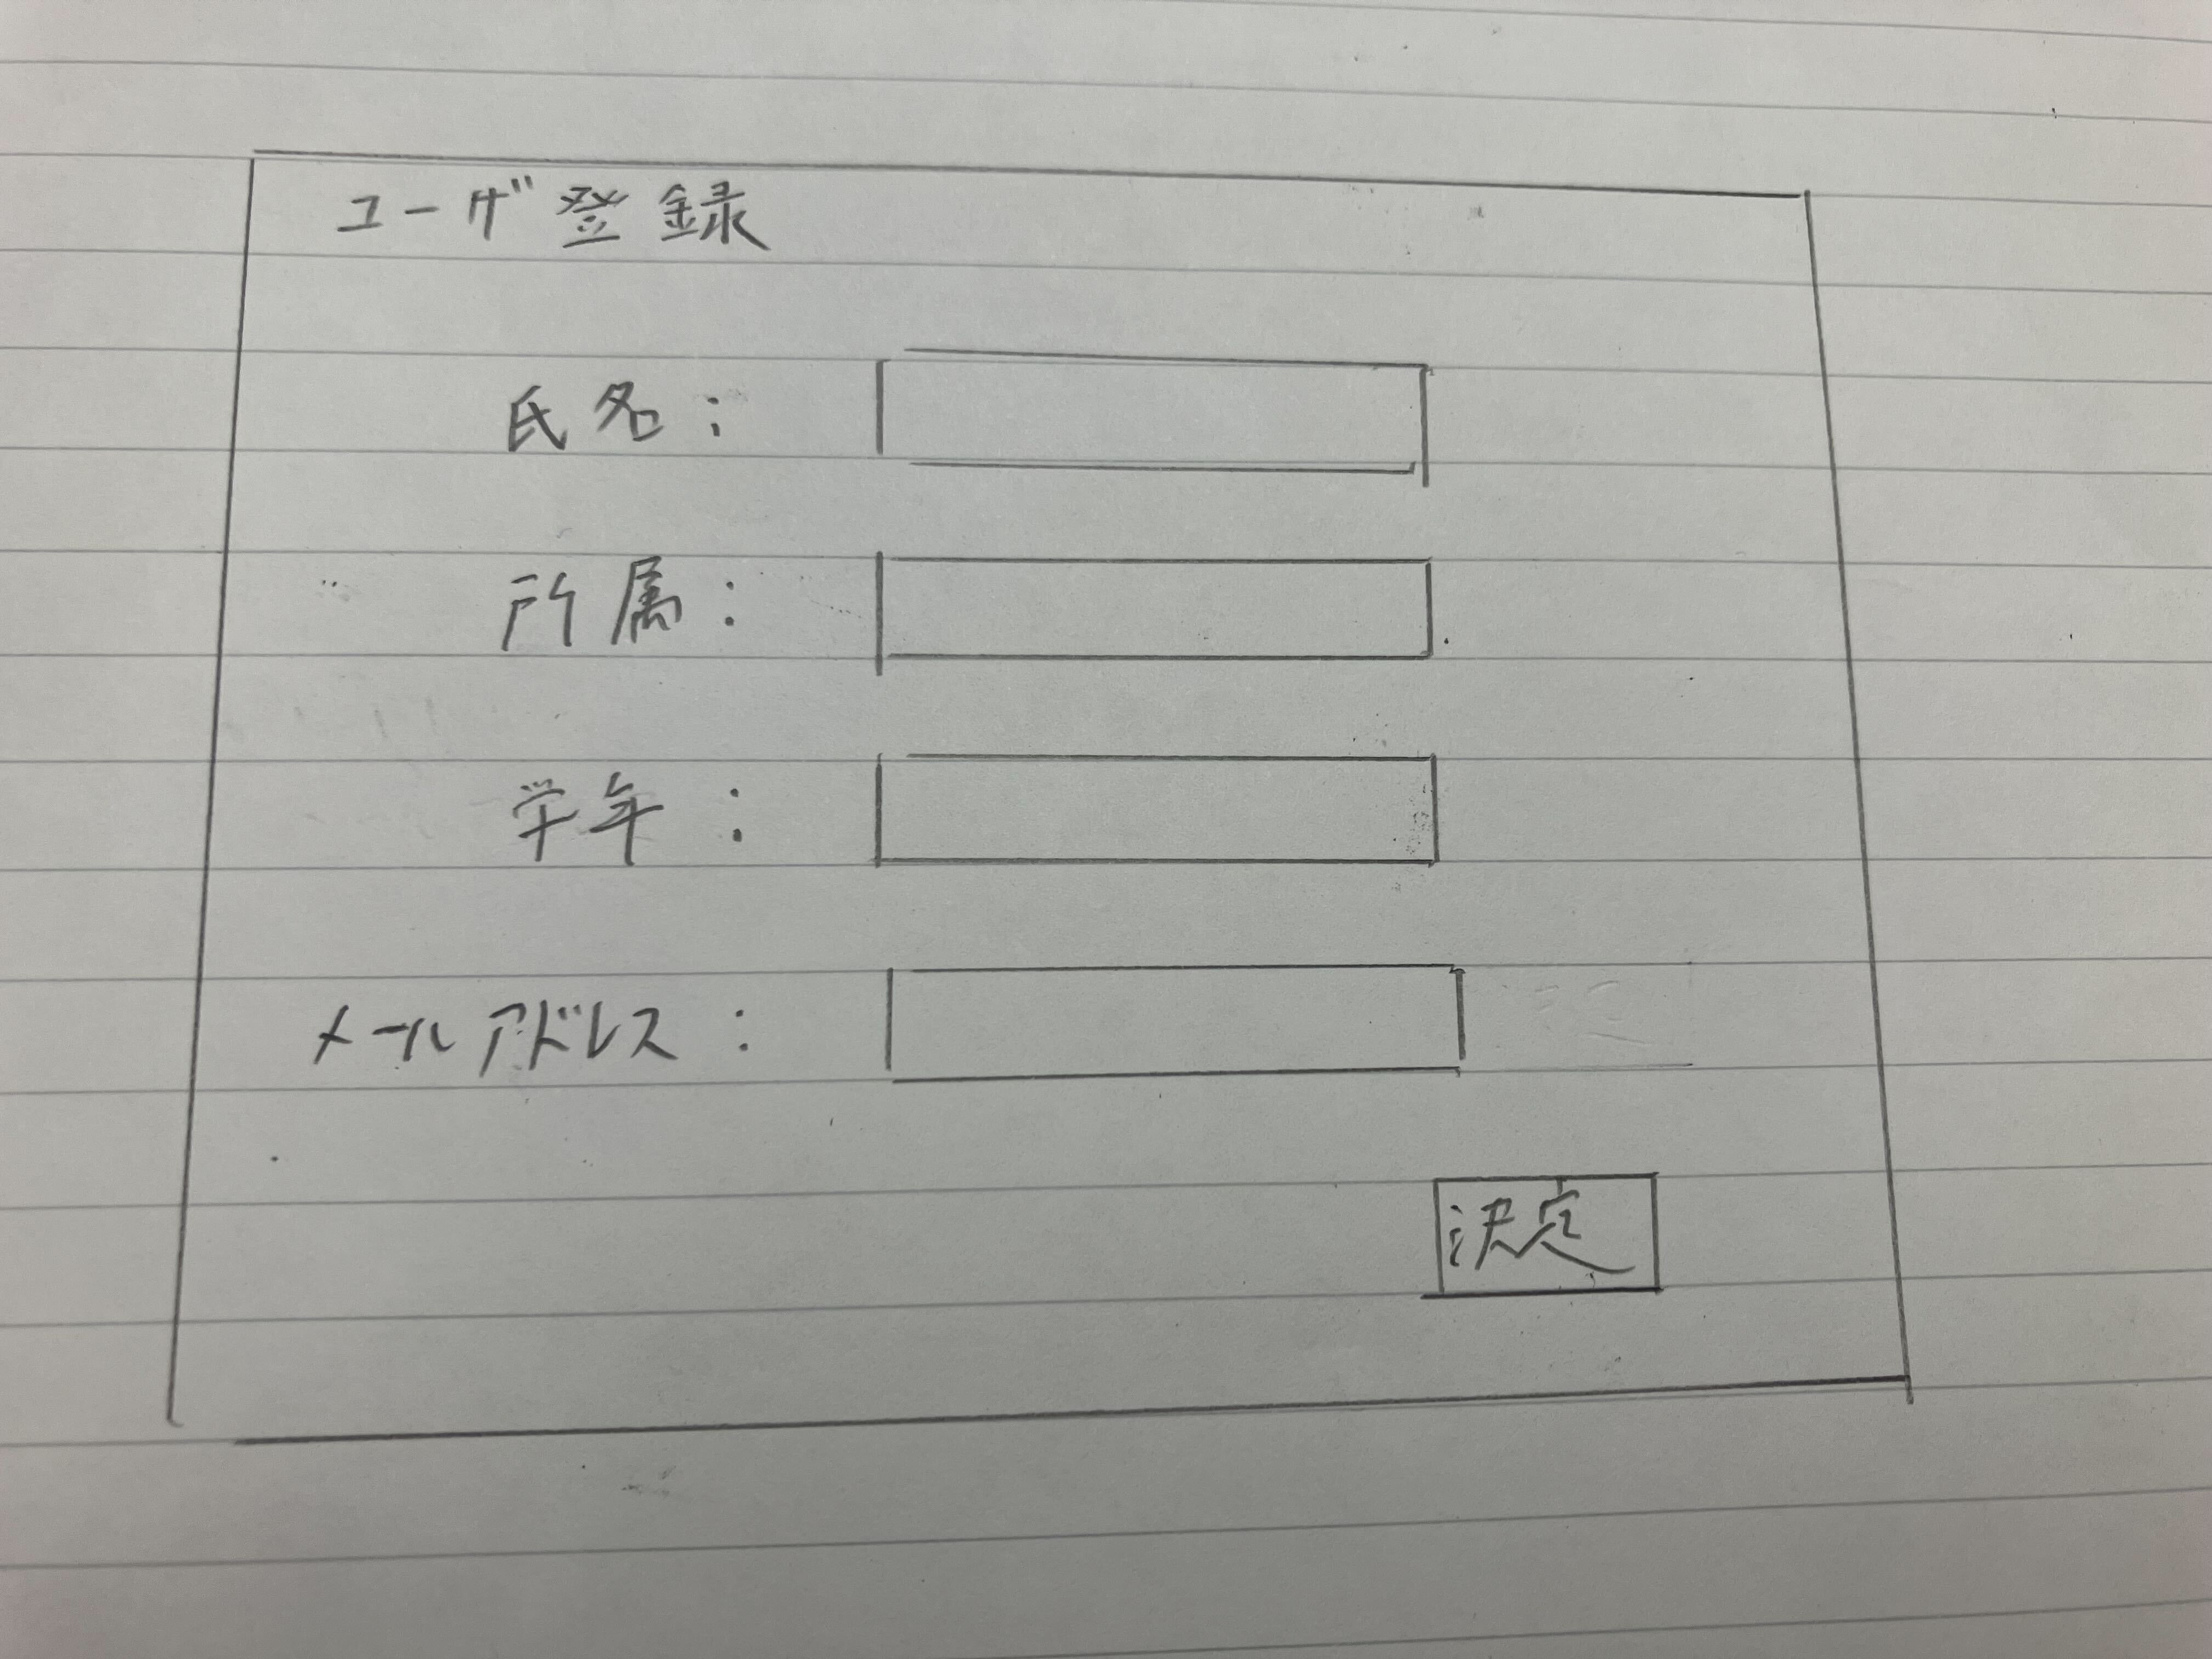 ユーザ登録
氏名：
所属：
学年：
メールアドレス：
決定